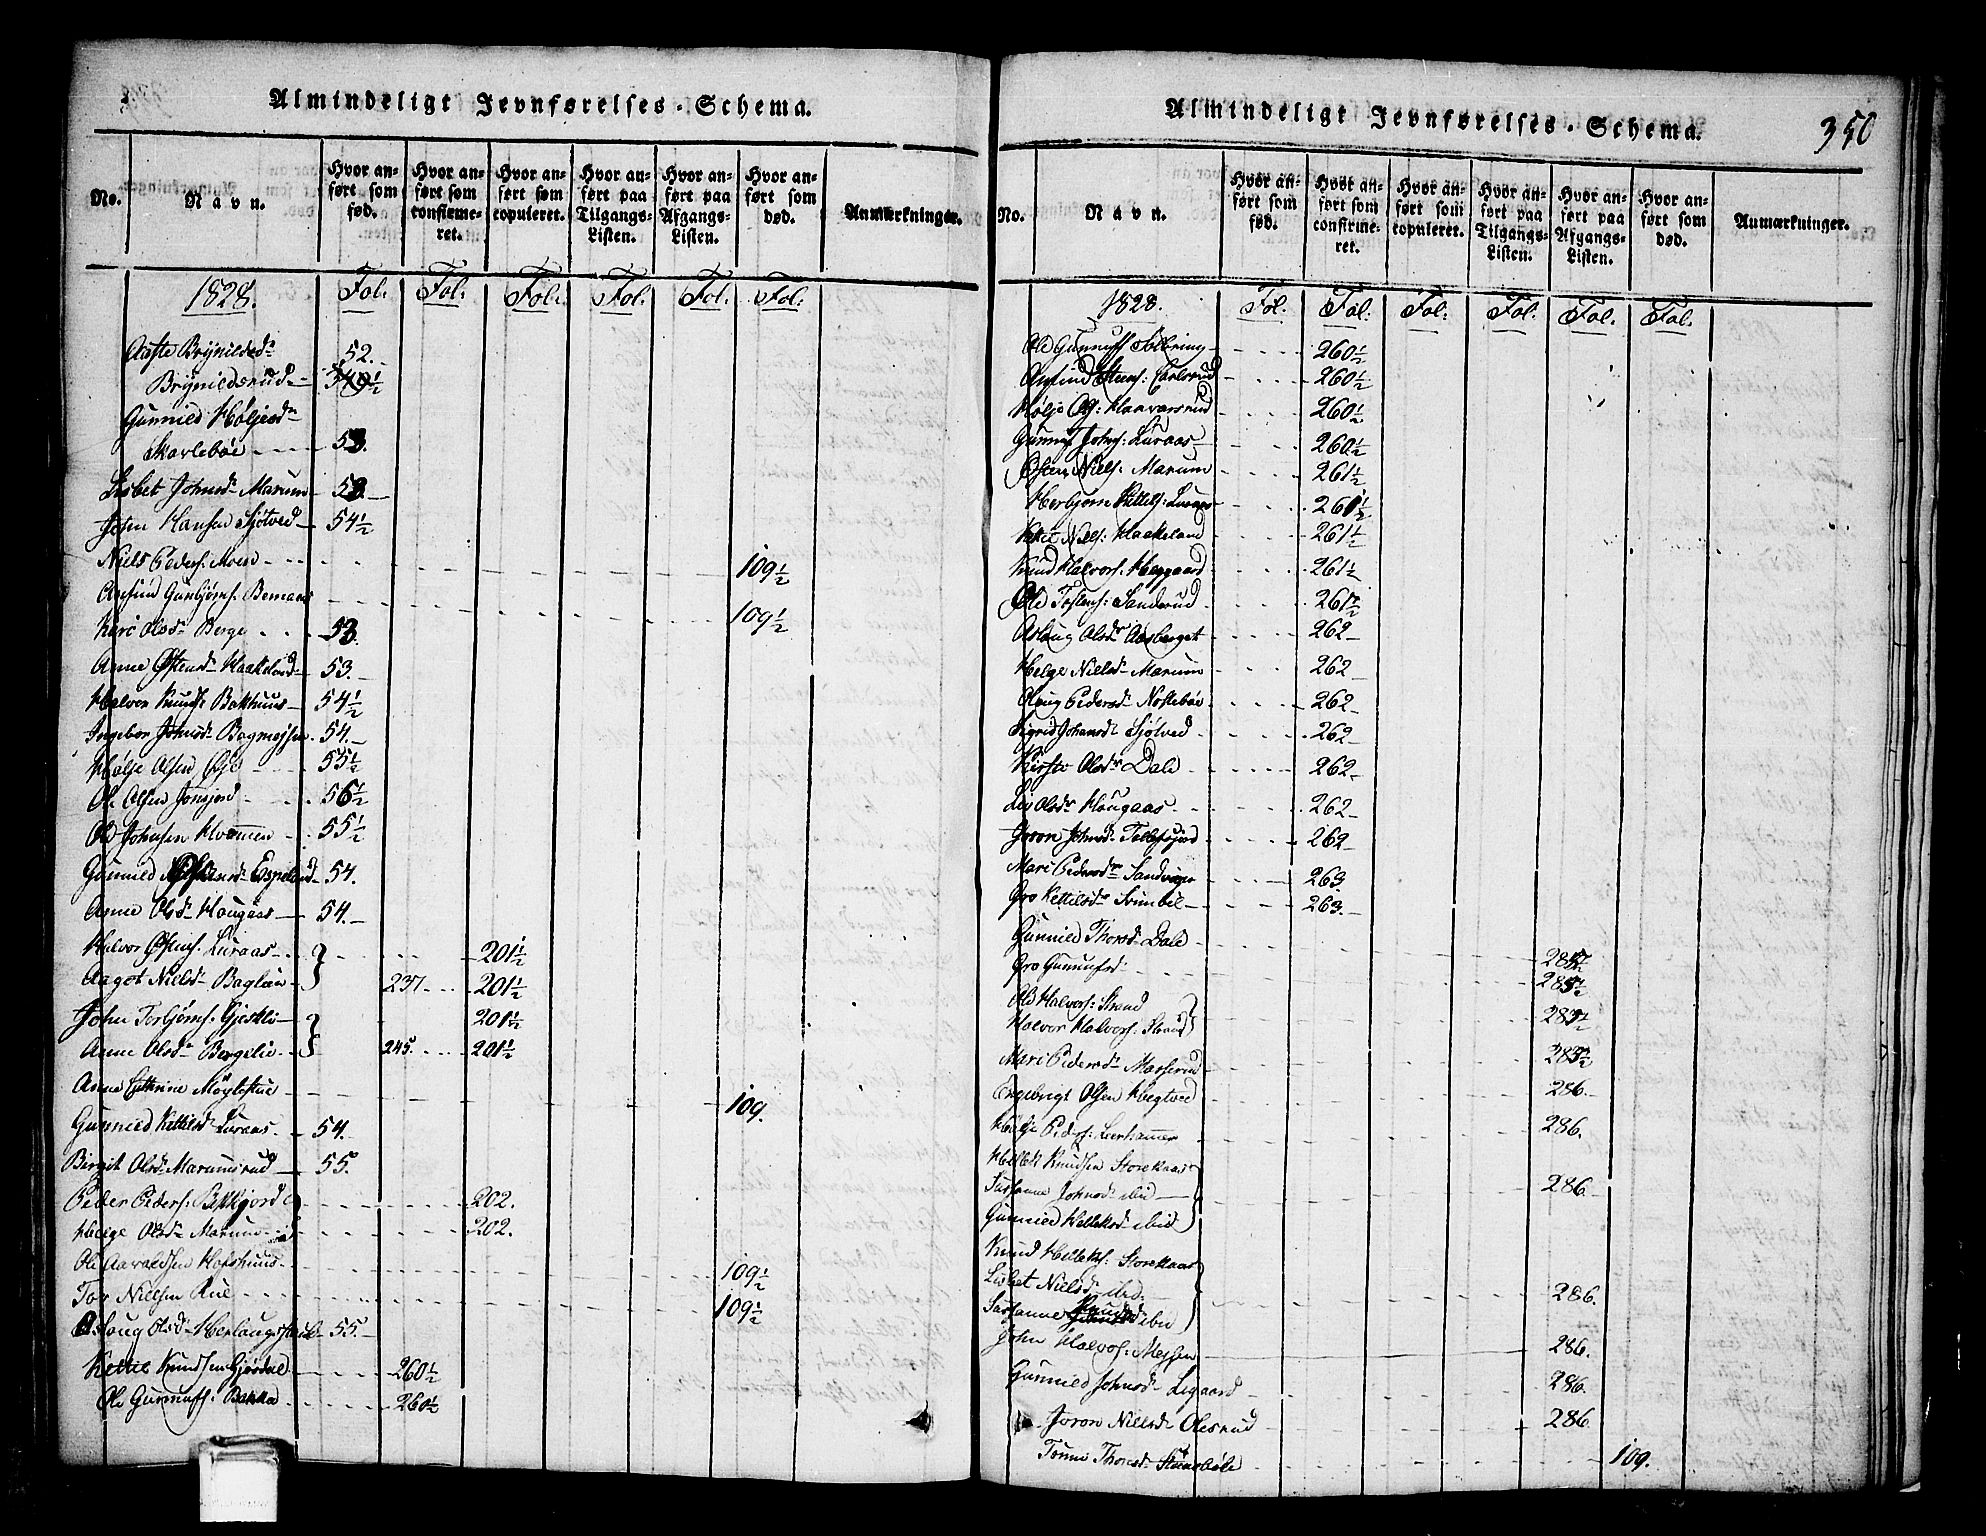 Almindeligt Jevnførelses-Schema.
No. Navn. Hvor anført som fød. Hvor anført som confirmeret. Hvor anført som copuleret. Hvor anført paa Tilgangs-Listen. Hvor anført paa Afgangs-Listen. Hvor anført som død. Anmærkninger.
1828. Fol: Fol: Fol: Fol: Fol: Fol:
Aaste Brynilsdr 52.
Brynildsrud
Gunnild Holjesdr
Skarlebøe 53.
Lisbet Johnsdr Marum 53.
John Hansen Sjøtved 54½
Niels Peders: Moen 109½
Anfind Gunbjørns: Bemaas 109½
Kari Olsdr Berge 53.
Anne Østensdr Haakeland 53.
Halvor Knuds: Bakhuus 54½
Ingebor Johnsdr Bagmejsen 54.
Holje Olsen Øye 55½
Ole Olsen Jonsjord 56½
Ole Johnsen Hvammen 55½
Gunnild Espeland 54.
Anne Olsdr Haugaas 54.
Halvor Østens: Luraas 201½
Aagot Nielsdr Bagleen 237 201½
John Torbjørns: Gjestlie 201½
Anne Olsdr Bergelie 245. 201½
Anne Cathrine Møglestue 109.
Gunnild Kettilsdr Luraas 54.
Birgit Olsdr Marumsrud 55.
Peder Peders: Bakkjord 202.
Helge Olsdr Marum 202.
Ole Aaroldsen Hofshuus 109½
Tor Nielsen Rue 109½
Aslaug Olsdr Herlaugstuel 55.
Kettil Knudsen Gjøsdal 260½
Ole Gunnufs: Bakka 260½
Almindeligt Jevnførelses-Schema.
350
No. Navn. Hvor anført som fød. Hvor anført som confirmeret. Hvor anført som copuleret. Hvor anført paa Tilgangs-Listen. Hvor anført paa Afgangs-Listen. Hvor anført som død. Anmærkninger.
1828. Fol. Fol: Fol: Fol. Fol. Fol.
Ole Gunnufs: 260½
Anfind Stens: Carlsrud 260½
Holje Ols: Haavarsrud 260½
Gunnuf Johns: Luraas 260½
Østen Niels: Marum 261½
Herbjørn Kittils: Luraas 261½
Kittil Niels: Haakeland 261½
Knud Halvors: Heggaard 261½
Ole Tostens: Sanderud 261½
Aslaug Olsdr Aasberget 262
Helge Nielsdr Marum 262
Olaug Pedersdr Nøstebøe 262
Sigrid Johansdr Sjøtved 262
Kirste Olsdr Dale 262
Lis Olsdr Haugaas 262
Joron Johnsdr Tollefsjord 262
Mari Pedersdr Sandvigen 263
Gro Kettilsdr Svimbil 263.
Gunnild Thorsdr Dale 285½
Gro Gunnufsdr 285½
Ole Halvors: Strand
Halvor Halvors: Strand 285½
Mari Pedersdr Masserud 285½
Engebrigt Olsen Hegtved 286.
Holje Peders: Leerhammer 286.
Hellek Knudsen Storekaas
Susanne Johnsdr ibid 286
Gunnild Helleksdr ibid
Knud Helleks: Storekaas
Lisbet Nielsdr ibid. 286.
Susanne Knudsd ibid
John Halvors: Messen 286.
Gunnild Johnsdr Legaard 286.
Joron Nielsdr Olesrud 286.
Tonne Thorsdr 109.